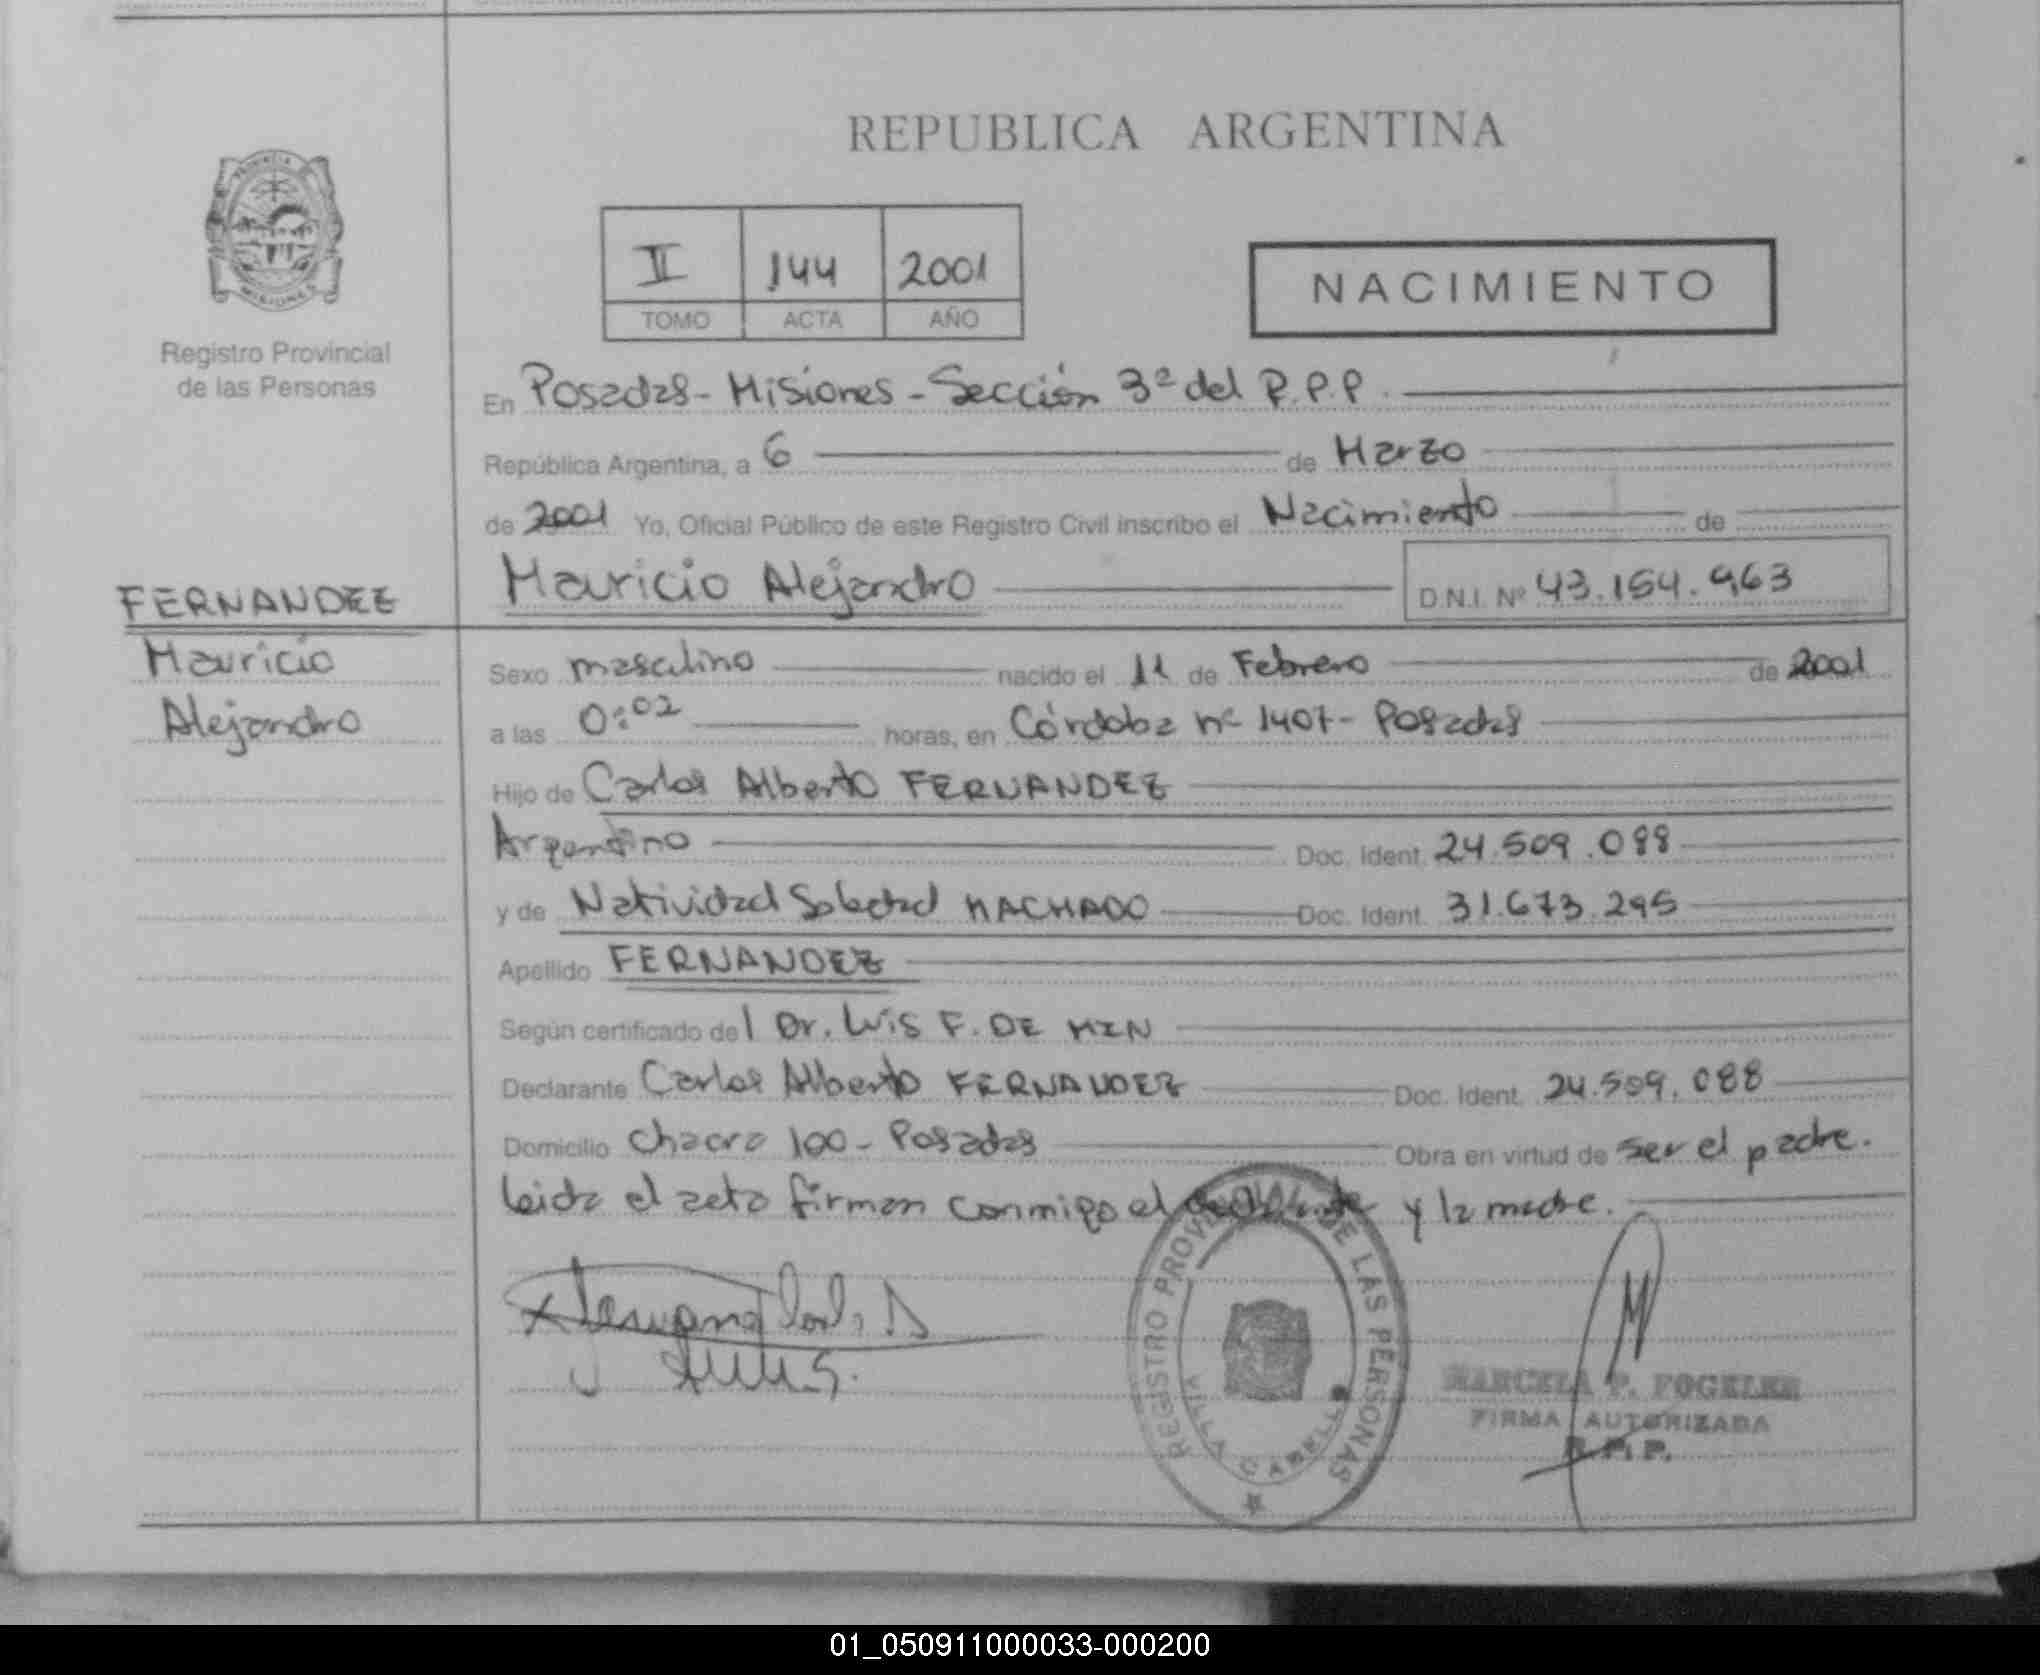 REPUBLICA ARGENTINA
II 144 2001
TOMO ACTA AÑO
NACIMIENTO
PROVINCIA
MISIONES
Registro Provincial
de las Personas
En Posadas - Misiones - Sección 3ª del R.P.P.
República Argentina, a 6 de Marzo
de 2001 Yo, Oficial Público de este Registro Civil inscribo el Nacimiento de
Mauricio Alejandro D.N.I. Nº 43.154.963
FERNANDEZ
Mauricio
Alejandro
Sexo masculino nacido el 11 de Febrero de 2001
a las 0:02 horas, en Córdoba nº 1407 - Posadas
Hijo de Carlos Alberto FERNANDEZ
Argentino Doc. Ident. 24.509.088
y de Natividad Soledad MACHADO Doc. Ident. 31.673.295
Apellido FERNANDEZ
Según certificado del Dr. Luis F. DE MIN
Declarante Carlos Alberto FERNANDEZ Doc. Ident. 24.509.088
Domicilio Chacra 100 - Posadas Obra en virtud de ser el padre.
Leida el acta firman conmigo el declarante y la madre.
REGISTRO PROVINCIAL DE LAS PERSONAS
VILLA CABELLO
MARCELA P. FOGELER
FIRMA AUTORIZADA
R.P.P.
01_050911000033-000200